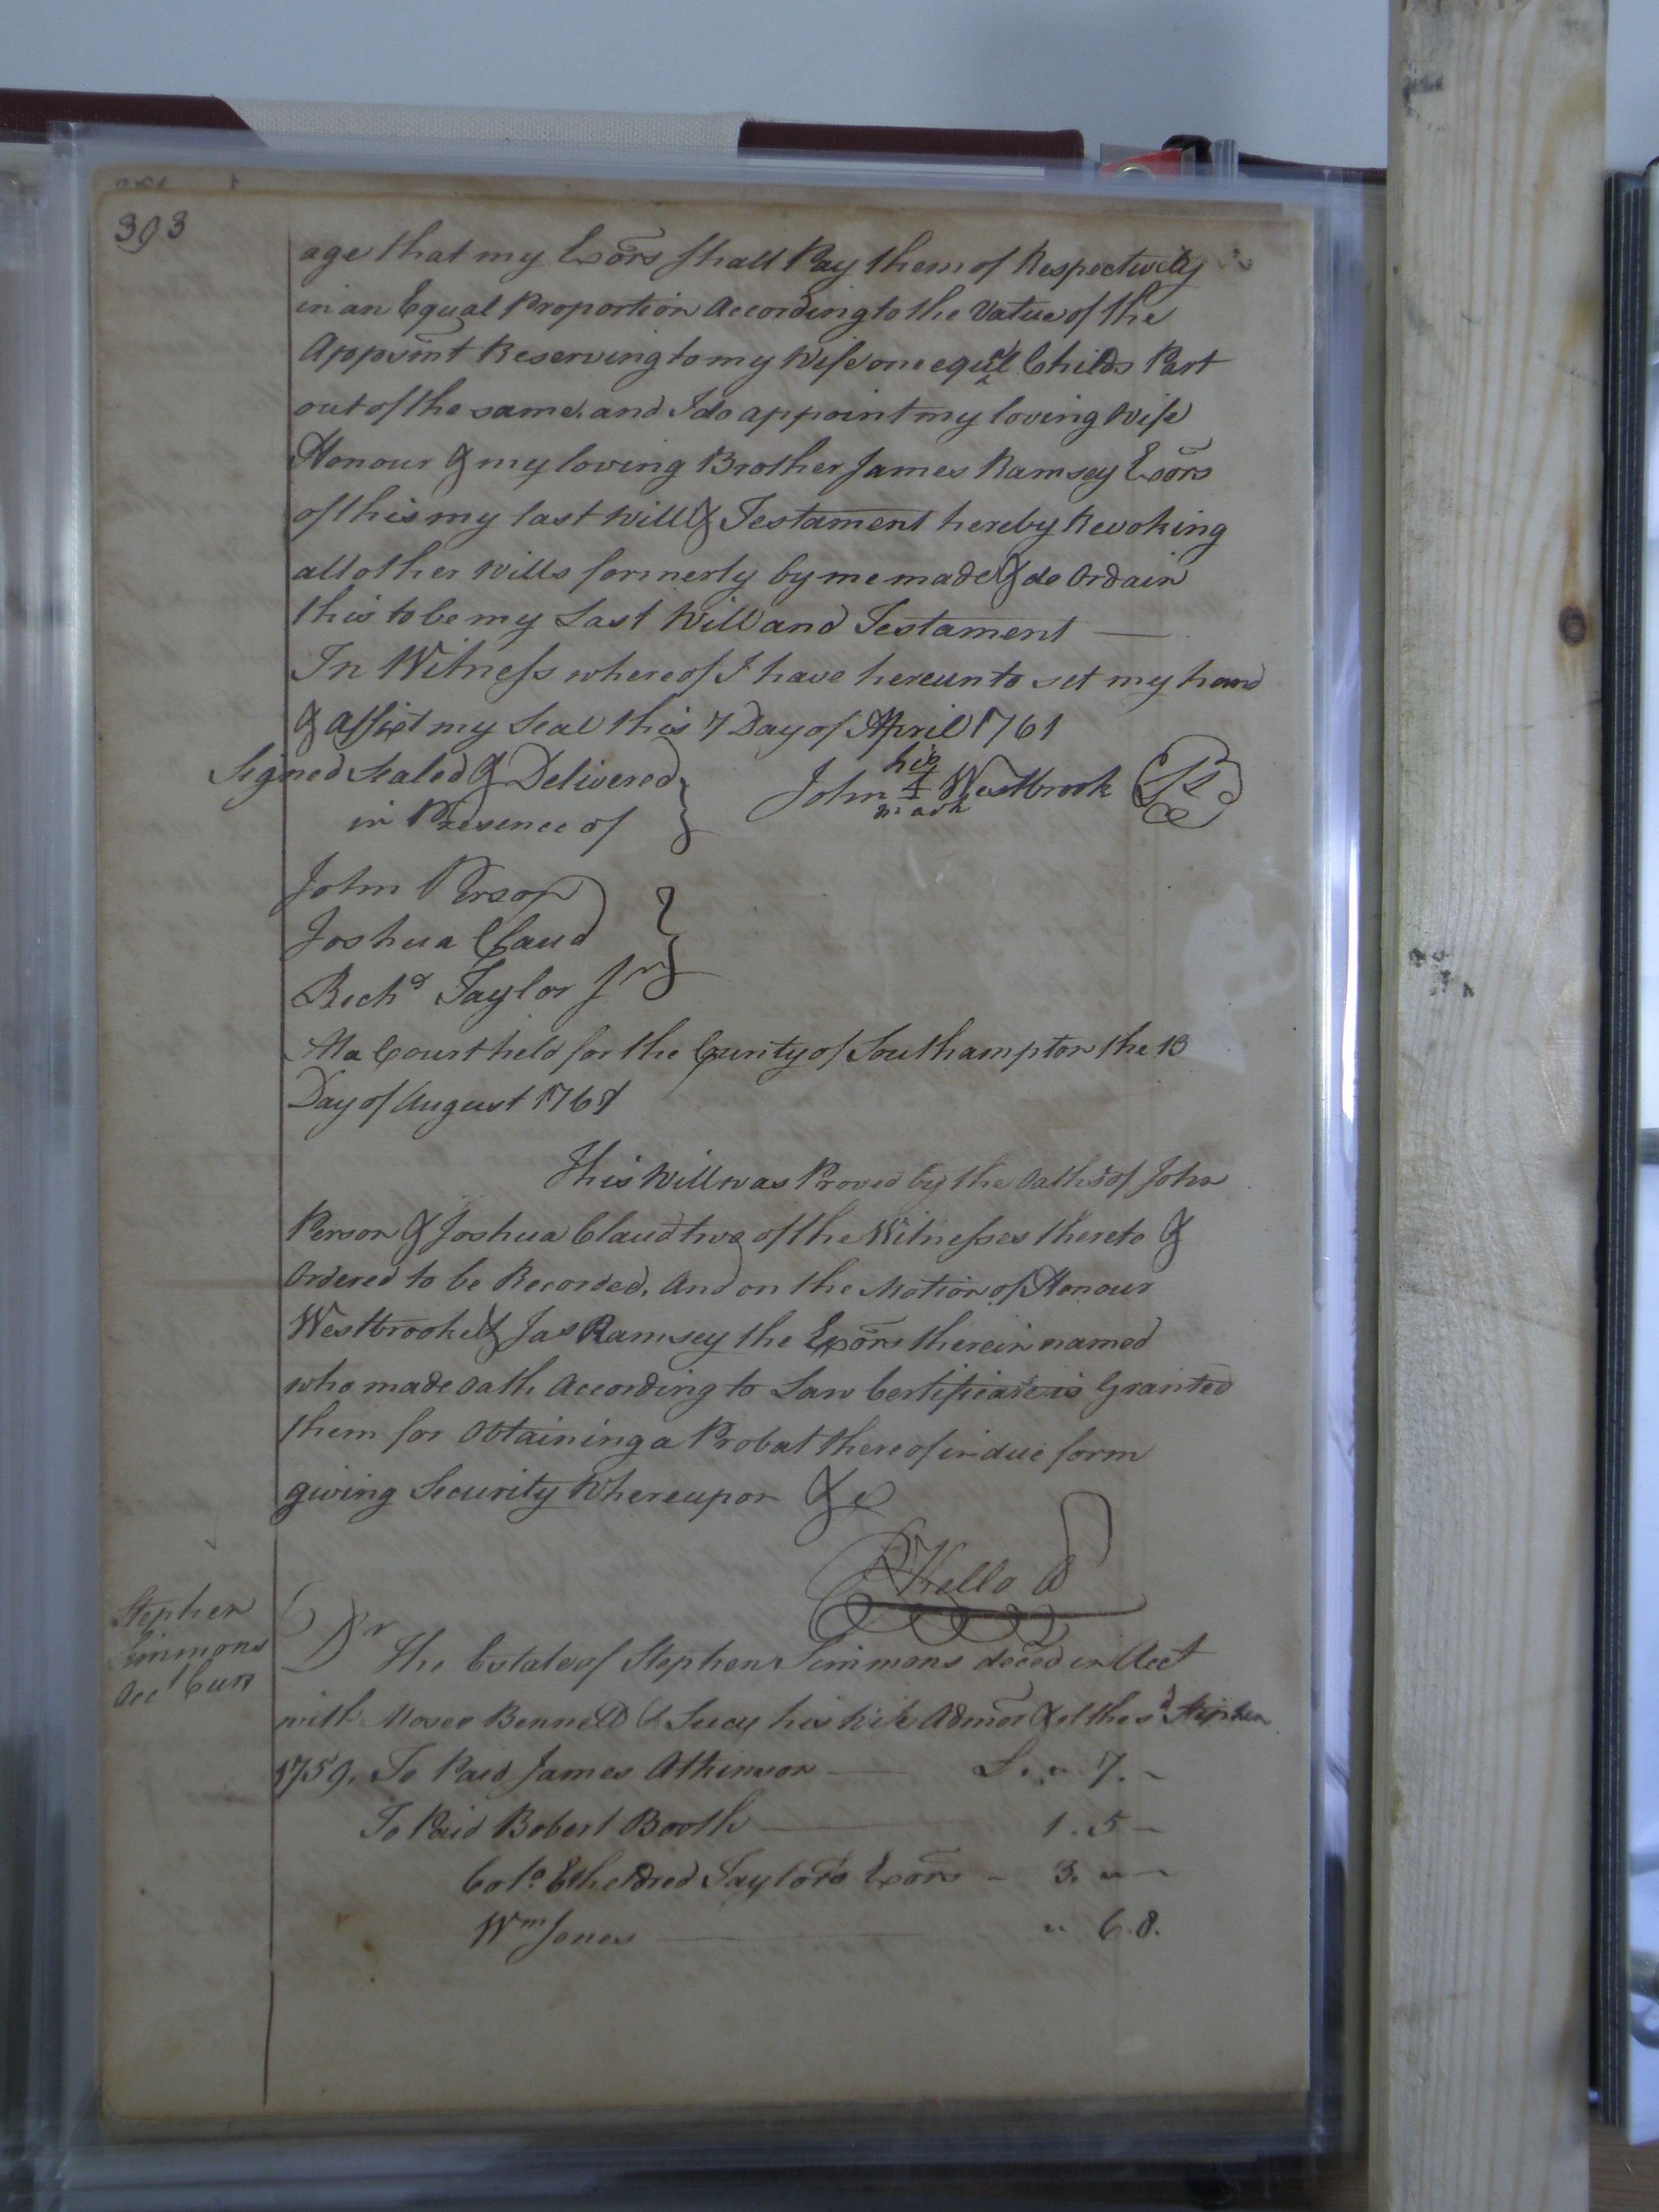 393
age that my Exõrs shall Pay them of Respectively
in an Equal Proportion According to the Value of the
Reserving to my Wife one equal Childs Part
out of the same, and I do appoint my loving Wife
Honour & my loving Brother James Ramsey Exõrs
of this my last Will & Testament hereby Revoking
all other Wills formerly by me made & do Ordain
this to be my Last Will and Testament —
In Witness whereof I have hereunto set my hand
& affixt my Seal this 7 Day of April 1761
Signed Sealed & Delivered
in Presence of
his
John Westbrook
mark
John Person
Joshua Claud
Richd Taylor Jr
At a Court held for the County of Southampton the 13
Day of August 1761
This Will was Proved by the Oaths of John
Person & Joshua Claud two of the Witnesses thereto &
Ordered to be Recorded, And on the Motion of Honour
Westbrooke & Jas Ramsey the Exõrs therein named
who made Oath According to Law Certificate is Granted
them for Obtaining a Probat thereof in due form
giving Security Whereupon &c
R Kello
Stephen
Simmons
Acct Curr
Dr
The Estate of Stephen Simmons deced in Acct
with Moses Bennett & Lucy his Wife Admor &c of the sd Stephen
1759. To Paid James Atkinson — L. " 7. -
To Paid Robert Booth — 1. 5 -
Colo. Etheldred Taylors Exõrs - 3. " -
Wm Jones — " 6. 8.